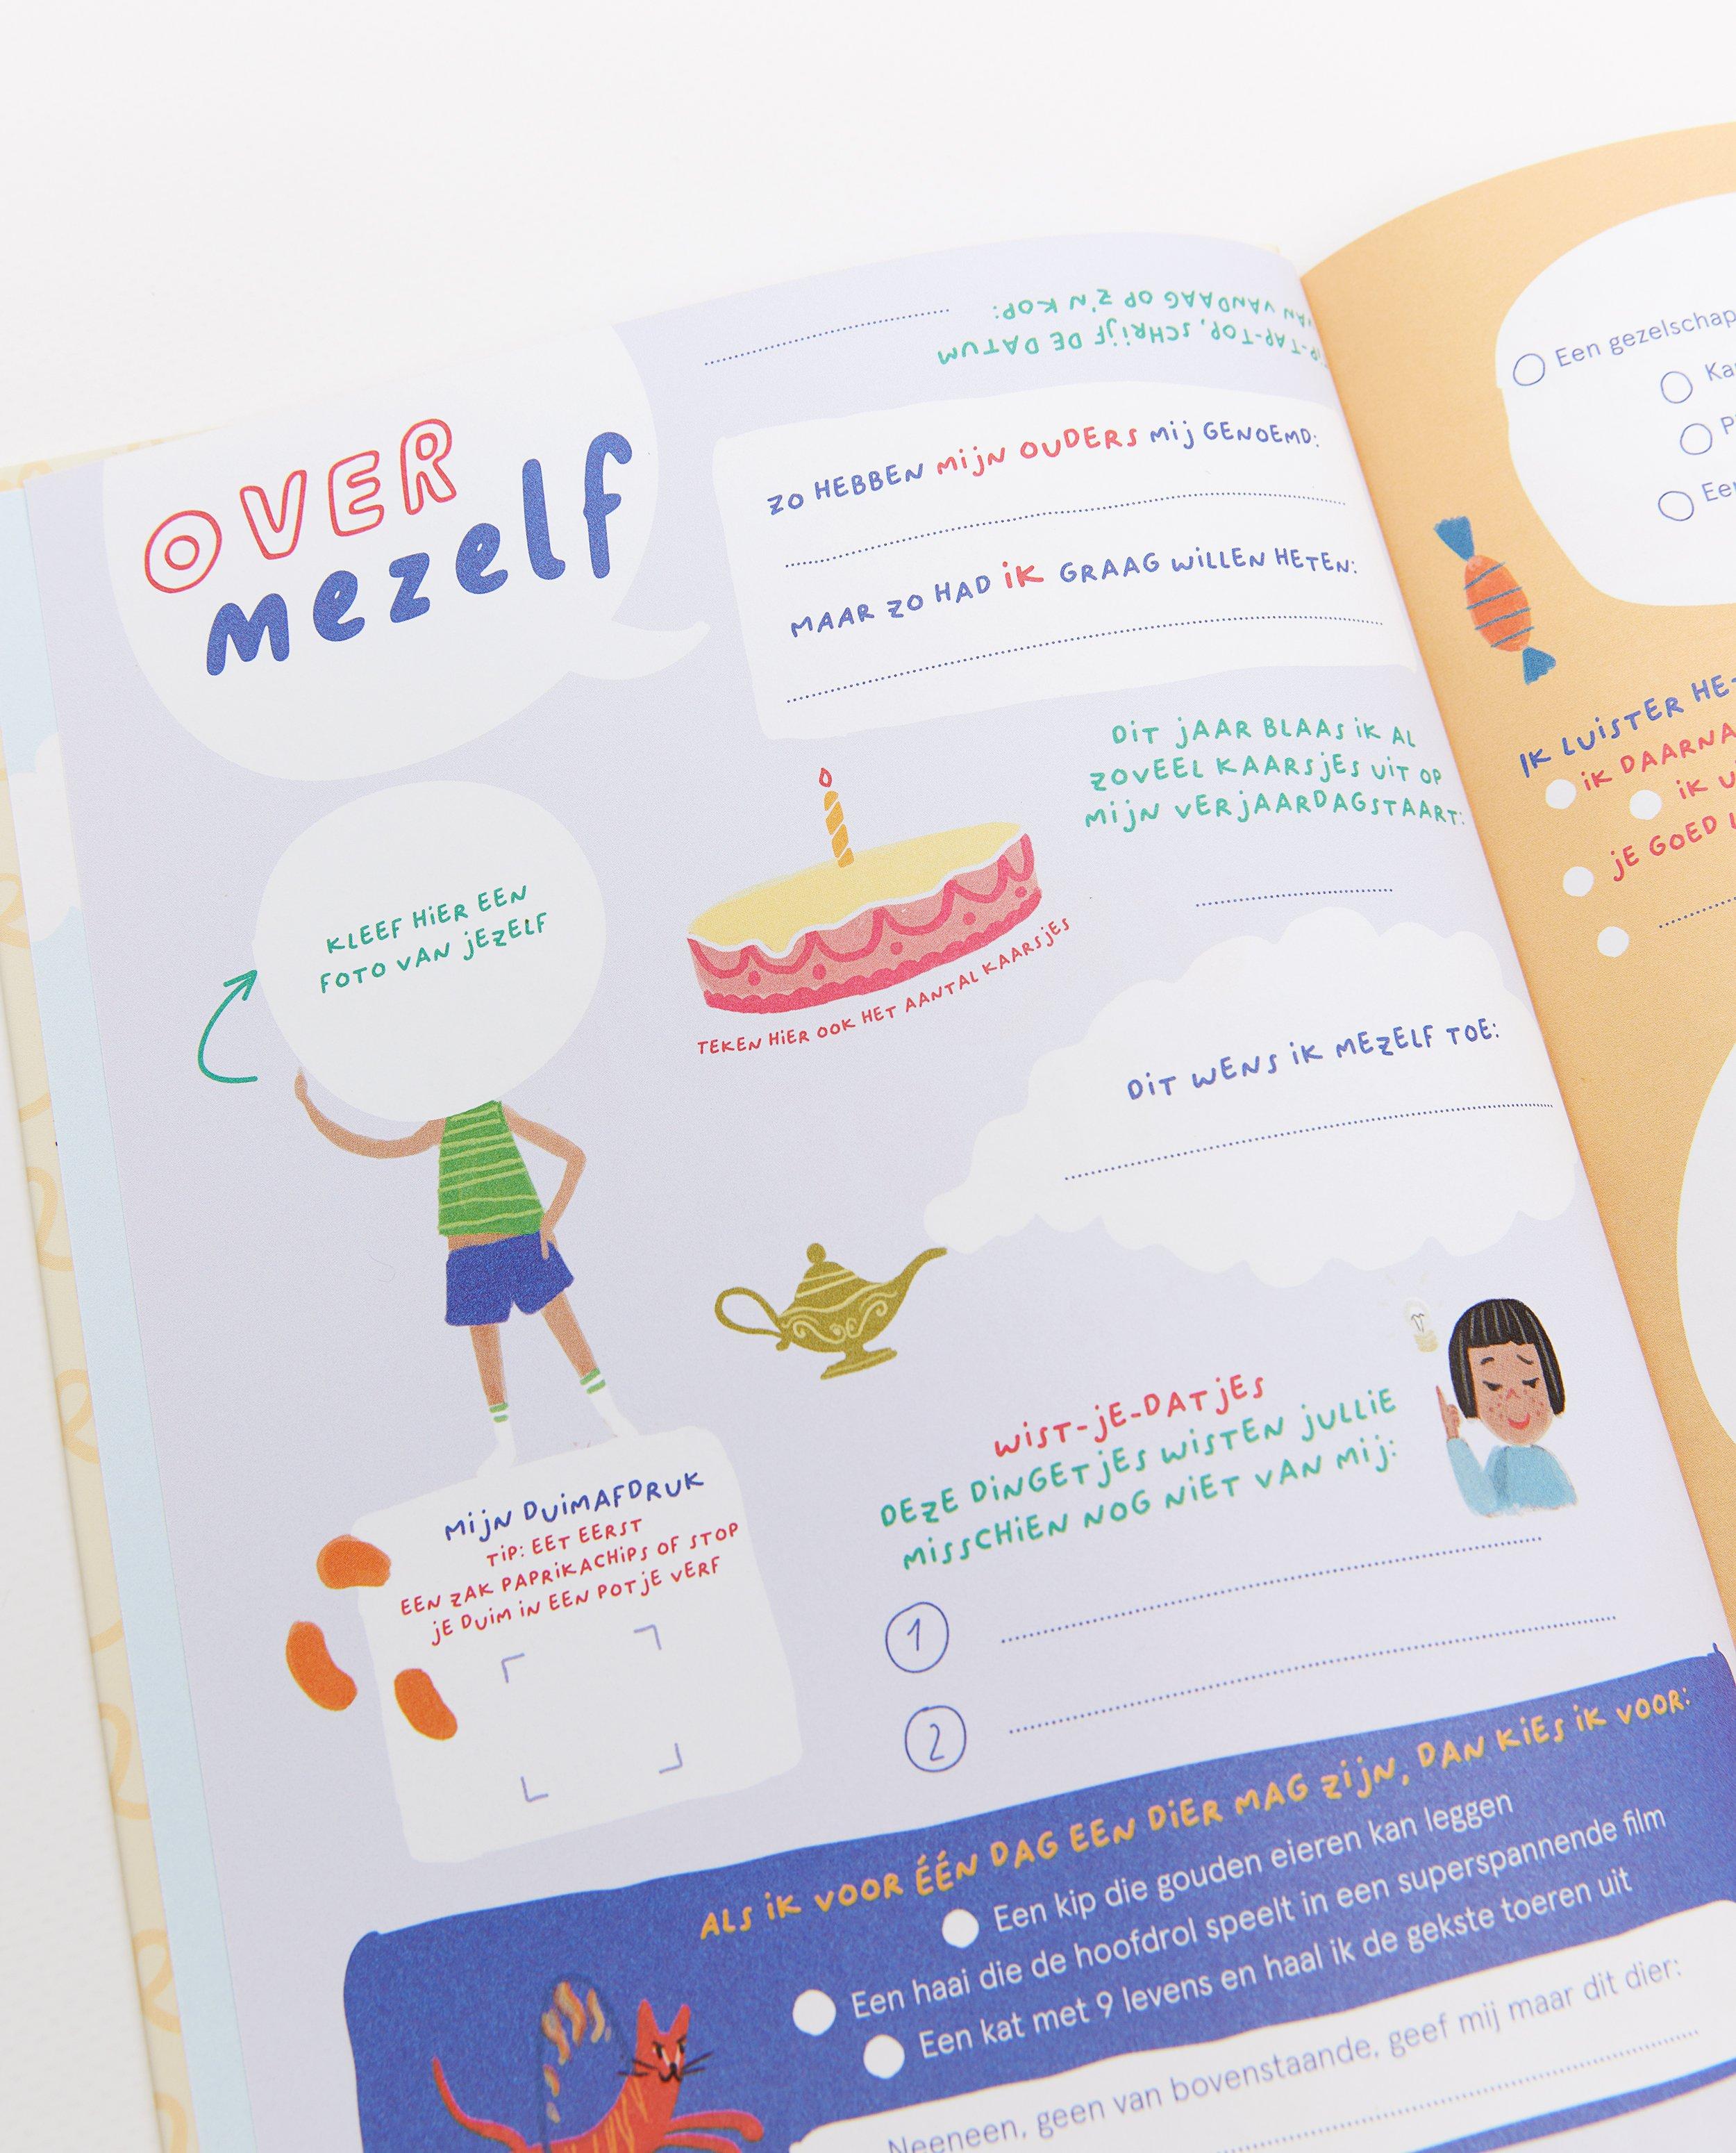 OVER
mezelf
TIP-TAP-TOP, SCHRIJF DE DATUM
VAN VANDAAG OP Z'N KOP:
ZO HEBBEN MIJN OUDERS MIJ GENOEMD:
MAAR ZO HAD IK GRAAG WILLEN HETEN:
DIT JAAR BLAAS IK AL
ZOVEEL KAARSJES UIT OP
MIJN VERJAARDAGSTAART:
KLEEF HIER EEN
FOTO VAN JEZELF
TEKEN HIER OOK HET AANTAL KAARSJES
DIT WENS IK MEZELF TOE:
MIJN DUIMAFDRUK
TIP: EET EERST
EEN ZAK PAPRIKACHIPS OF STOP
JE DUIM IN EEN POTJE VERF
WIST-JE-DATJES
DEZE DINGETJES WISTEN JULLIE
MISSCHIEN NOG NIET VAN MIJ:
1
2
ALS IK VOOR ÉÉN DAG EEN DIER MAG ZIJN, DAN KIES IK VOOR:
Een kip die gouden eieren kan leggen
Een haai die de hoofdrol speelt in een superspannende film
Een kat met 9 levens en haal ik de gekste toeren uit
Neeneen, geen van bovenstaande, geef mij maar dit dier:
Een gezelschap
IK LUISTER HE
IK DAARNA
IK
JE GOED